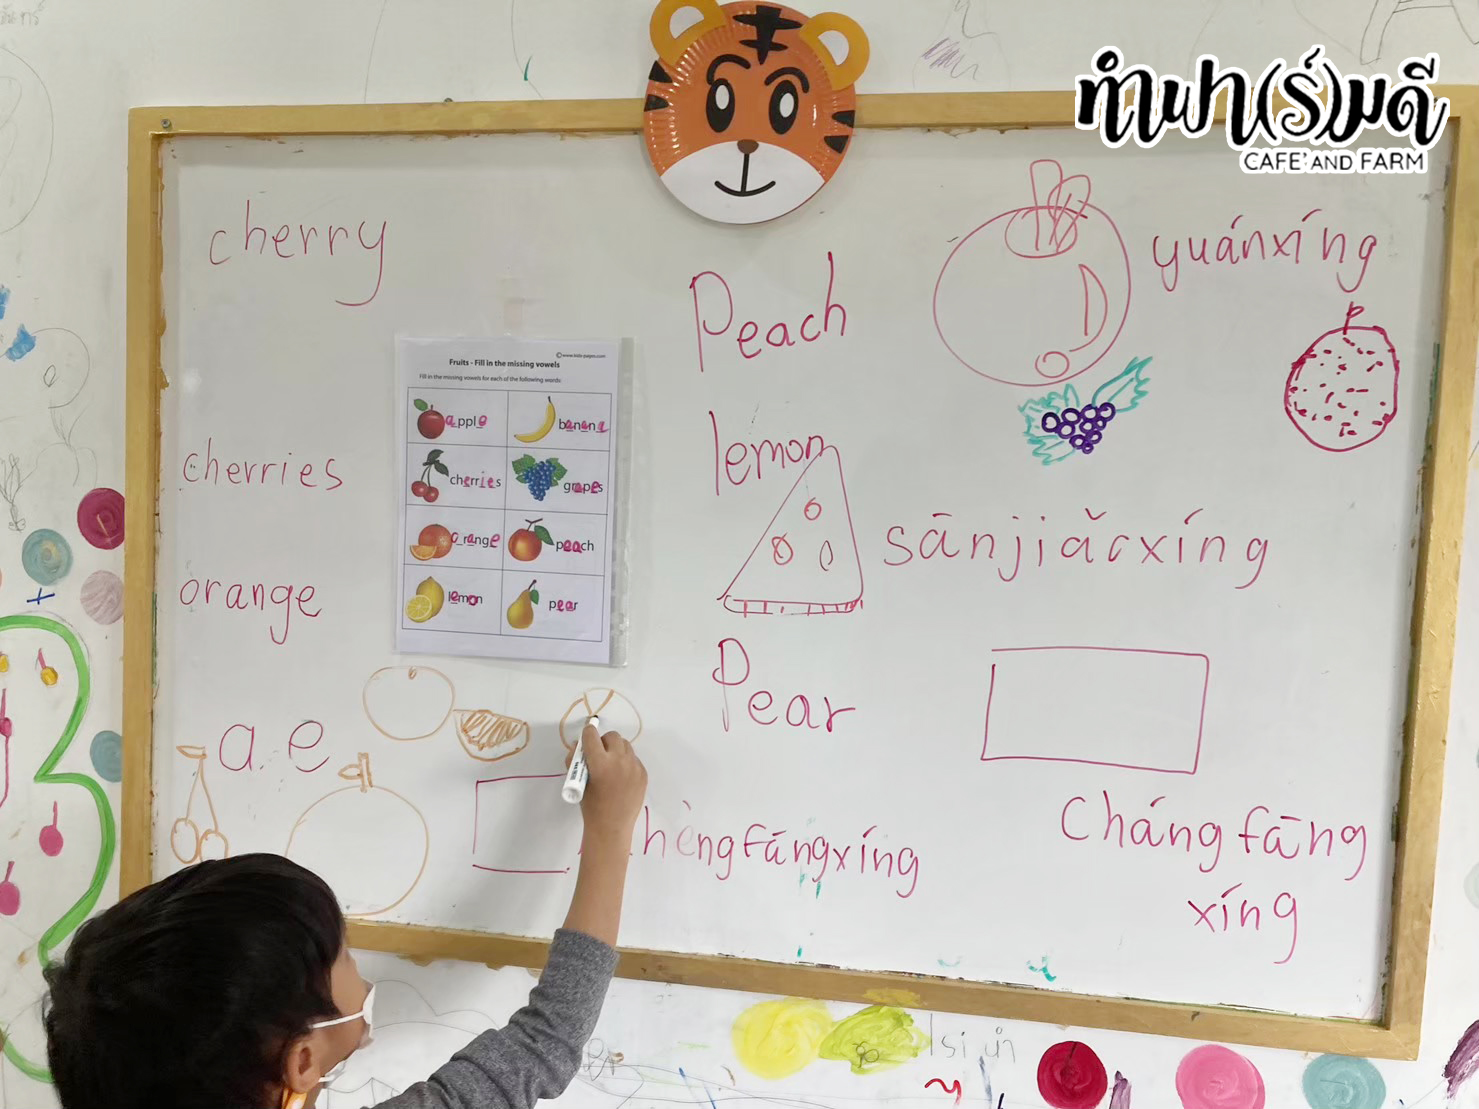 ทำฟา(ร์)มดี
CAFE' AND FARM
cherry
cherries
orange
a e
©www.kids-pages.com
Fruits - Fill in the missing vowels
Fill in the missing vowels for each of the following words:
apple
banana
cherries
grapes
orange
peach
lemon
pear
Peach
lemon
Pear
yuánxíng
sānjiǎoxíng
hèngfāngxíng
Chángfāng
xíng